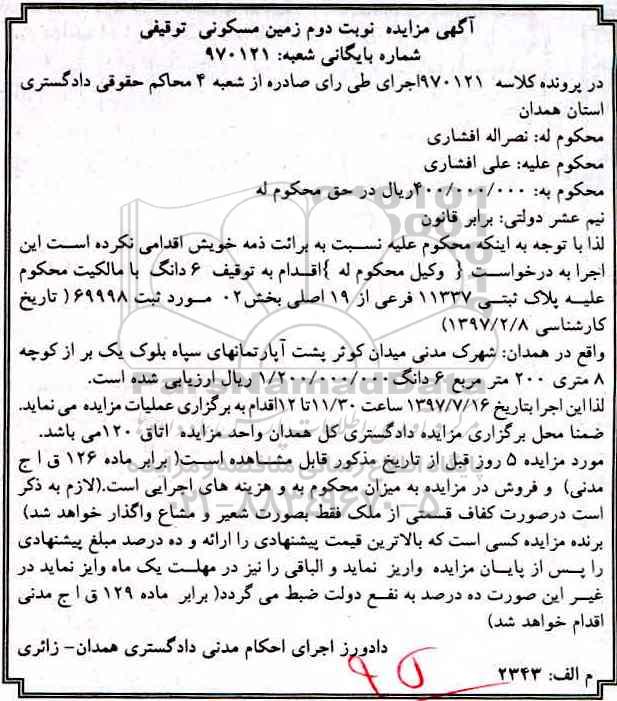 آگهی مزایده نوبت دوم زمین مسکونی توقیفی
شماره بایگانی شعبه: ۹۷۰۱۲۱
در پرونده کلاسه ۹۷۰۱۲۱اجرای طی رای صادره از شعبه ۴ محاکم حقوقی دادگستری
استان همدان
محکوم له: نصراله افشاری
محکوم علیه: علی افشاری
محکوم به: ۴۰۰/۰۰۰/۰۰۰ریال در حق محکوم له
نیم عشر دولتی: برابر قانون
لذا با توجه به اینکه محکوم علیه نسبت به برائت ذمه خویش اقدامی نکرده است این
اجرا به درخواست { وکیل محکوم له }اقدام به توقیف ۶ دانگ با مالکیت محکوم
علیه پلاک ثبتی ۱۱۳۳۷ فرعی از ۱۹ اصلی بخش۰۲ مورد ثبت ۶۹۹۹۸ ( تاریخ
کارشناسی ۱۳۹۷/۲/۸)
واقع در همدان: شهرک مدنی میدان کوثر پشت آپارتمانهای سپاه بلوک یک بر از کوچه
۸ متری ۲۰۰ متر مربع ۶ دانگ ۱/۲۰۰/۰۰۰/۰۰۰ ریال ارزیابی شده است.
لذا این اجرا بتاریخ ۱۳۹۷/۷/۱۶ ساعت ۱۱/۳۰تا ۱۲اقدام به برگزاری عملیات مزایده می نماید.
ضمنا محل برگزاری مزایده دادگستری کل همدان واحد مزایده اتاق ۱۲۰می باشد.
مورد مزایده ۵ روز قبل از تاریخ مذکور قابل مشاهده است( برابر ماده ۱۲۶ ق ا ج
مدنی) و فروش در مزایده به میزان محکوم به و هزینه های اجرایی است.(لازم به ذکر
است درصورت کفاف قسمتی از ملک فقط بصورت شعیر و مشاع واگذار خواهد شد)
برنده مزایده کسی است که بالاترین قیمت پیشنهادی را ارائه و ده درصد مبلغ پیشنهادی
را پس از پایان مزایده واریز نماید و الباقی را نیز در مهلت یک ماه وایز نماید در
غیر این صورت ده درصد به نفع دولت ضبط می گردد( برابر ماده ۱۲۹ ق ا ج مدنی
اقدام خواهد شد)
دادورز اجرای احکام مدنی دادگستری همدان- زائری
م الف: ۲۳۴۳
ParsNamadData
۰۲۱-۸۸۳۴۹۶۷۰-۵